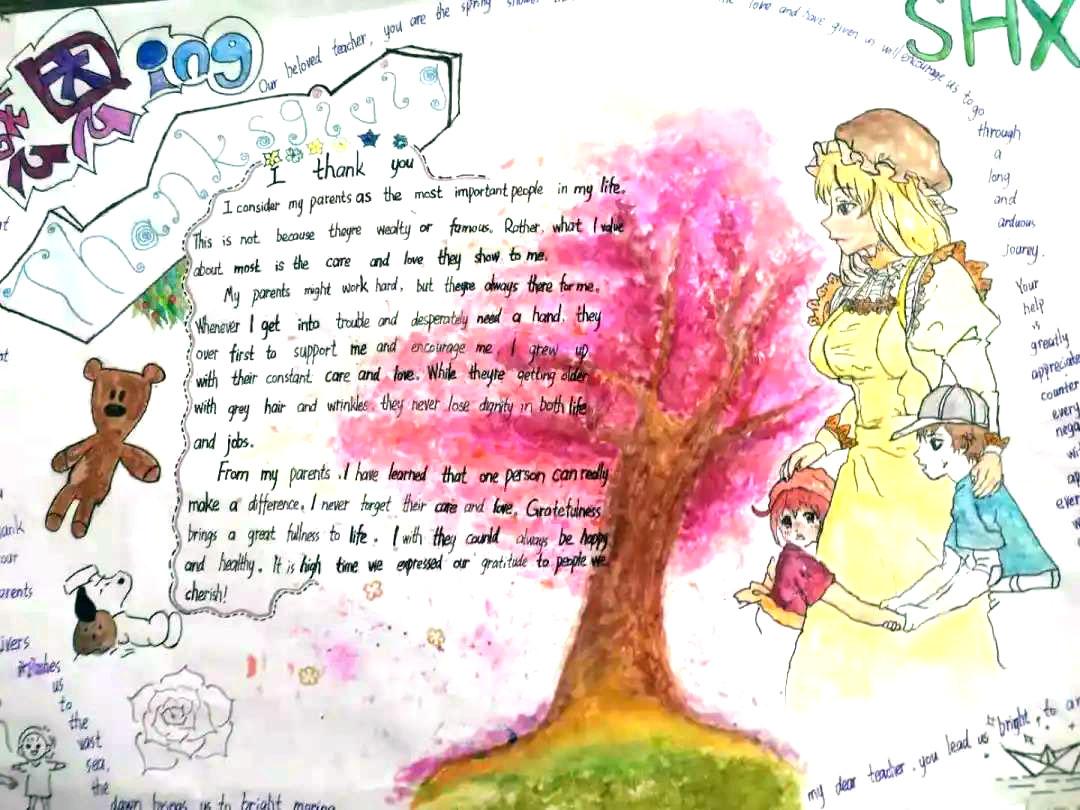 恩 ing
SHX
Thanksgiving
Our beloved teacher, you are the spring shower
love and have given us will encourage us to go
through
a
long
and
arduous
jourey.
Your
help
is
greatly
appreciate
counter
every
nega
wi
ap
ever
w
I thank you
I consider my parents as the most important people in my life.
This is not because theyre wealty or famous. Rather, what I value
about most is the care and love they show to me.
My parents might work hard, but theyre always there for me.
Whenever I get into trouble and desperately need a hand, they
over first to support me and encourage me. I grew up
with their constant care and love. While theyre getting older
with grey hair and wrinkles, they never lose dignity in both life
and jobs.
From my parents, I have learned that one person can really
make a difference. I never forget their care and love. Gratefulness
brings a great fullness to life. I with they counld always be happy
and healthy. It is high time we expressed our gratitude to people we
cherish!
ank
our
arents
ivers
us
to
the
vast
sea,
the
dawn brings us to bright moring
my dear teacher, you lead us bright, to ar